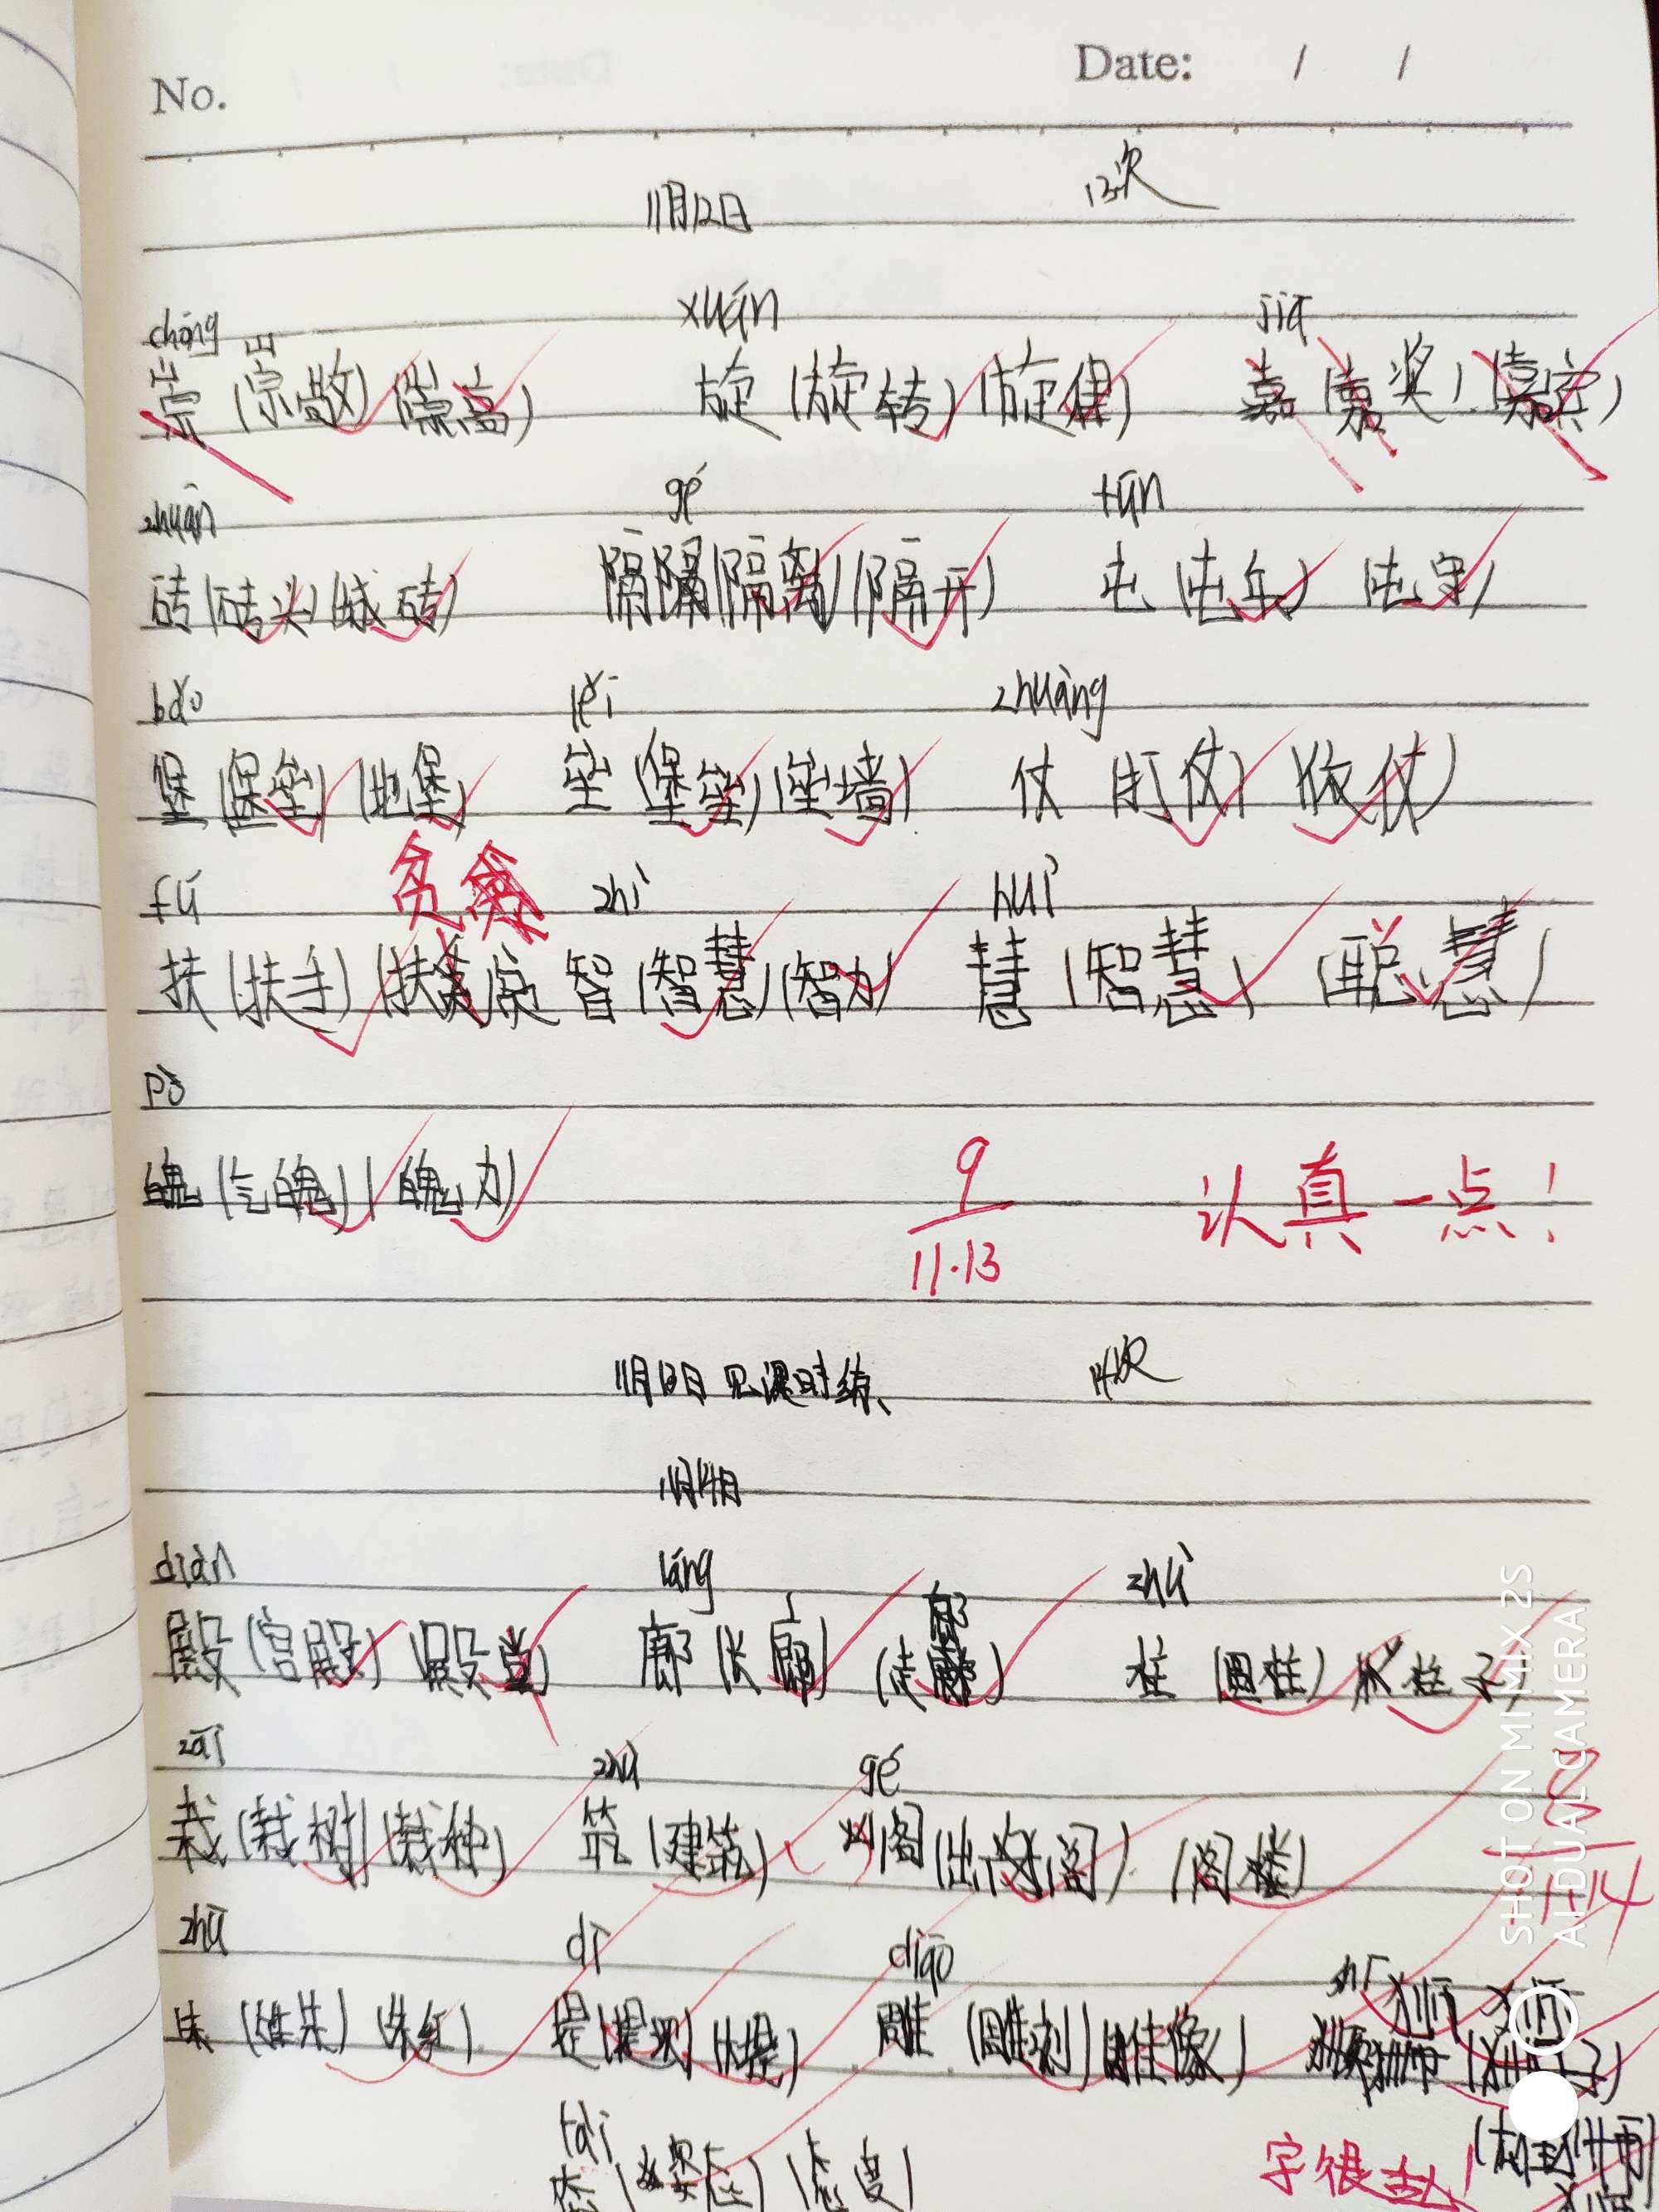 No. Date: / /
11月12日 13次
chóng xuán jiā
崇(崇敬)(崇高) 旋(旋转)(旋律) 嘉(嘉奖)(嘉宾)
zhuān gé tún
砖(砖头)(城砖) 隔(隔离)(隔开) 屯(屯年)(屯守)
bǎo lěi zhàng
堡(堡垒)(地堡) 垒(堡垒)(垒墙) 仗(打仗)(依仗)
fú 贫 zhì huì
扶(扶手)(扶 智(智慧)(智力) 慧(智慧)(聪慧)
pò
魄(气魄)(魄力)
9
11.13
认真一点!
11月13日 见课时练 14次
11月14日
diàn láng zhù
殿(宫殿)(殿堂) 廊(长廊)(走廊) 柱(圆柱)(柱子)
zāi zhù gé
栽(栽树)(栽种) 筑(建筑) 阁(出阁)(阁楼)
zhū dī diāo shī
朱(姓朱)(朱红) 堤(堤坝)(大堤) 雕(雕刻)(雕像) 狮
tài
态(姿态)(态度)
字很
SHOT ON MI MIX 2S
AI DUAL CAMERA